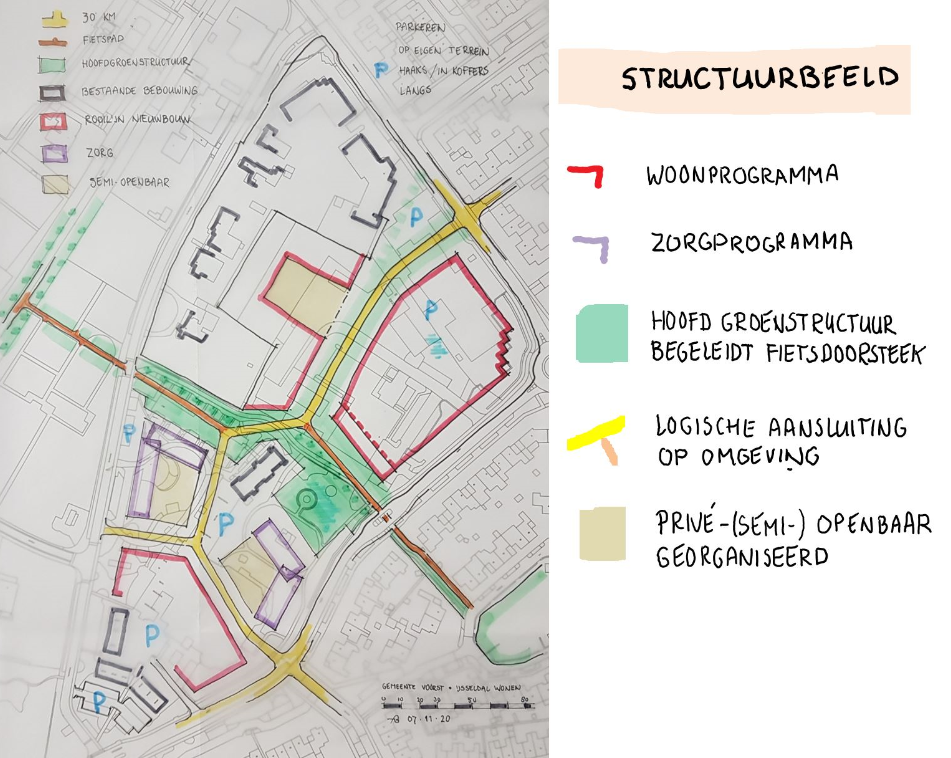 30 KM
FIETSPAD
HOOFDGROENSTRUCTUUR
BESTAANDE BEBOUWING
ROOILIJN NIEUWBOUW
ZORG
SEMI-OPENBAAR
PARKEREN
OP EIGEN TERREIN
P HAAKS/IN KOFFERS
LANGS
P
P
P
P
P
P
GEMEENTE VOORST • IJSSELDAL WONEN
0 10 20 30 50 80
07·11·20
STRUCTUURBEELD
WOONPROGRAMMA
ZORGPROGRAMMA
HOOFD GROENSTRUCTUUR
BEGELEIDT FIETSDOORSTEEK
LOGISCHE AANSLUITING
OP OMGEVING
PRIVÉ-(SEMI-) OPENBAAR
GEORGANISEERD